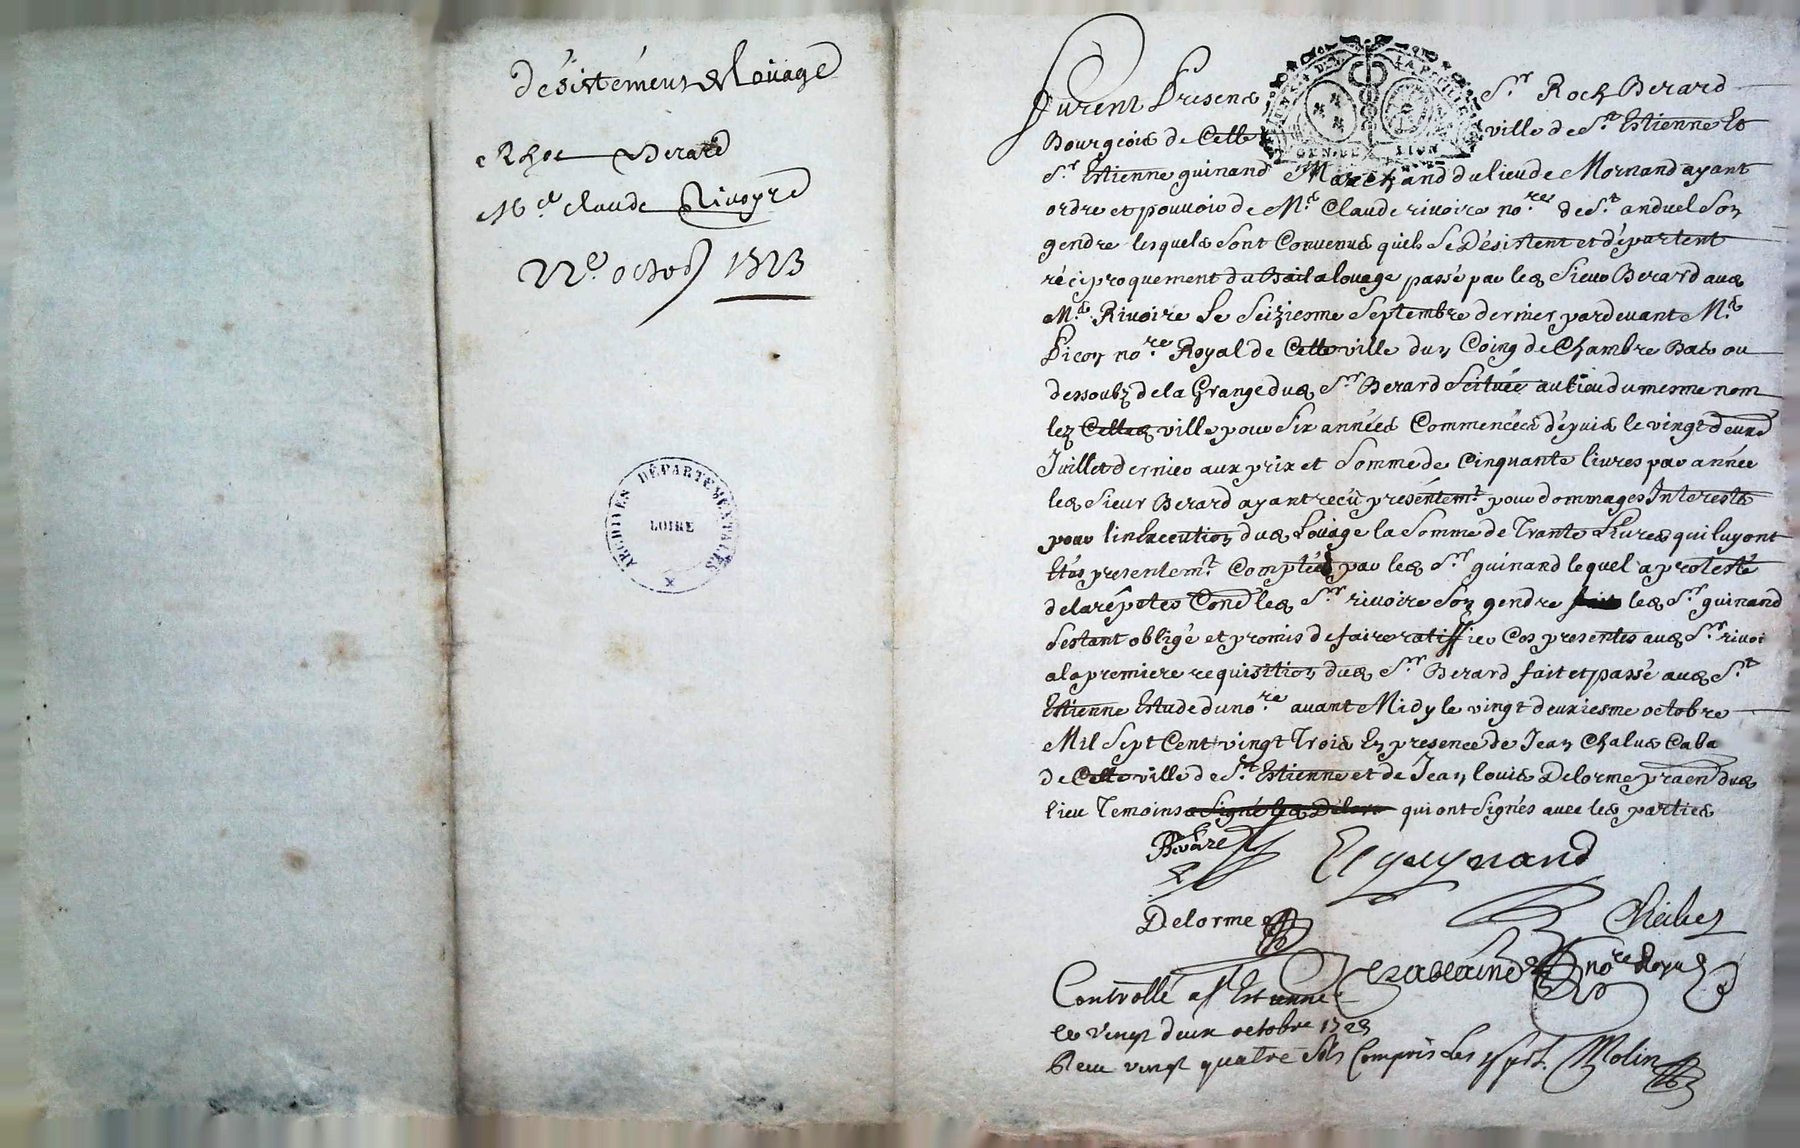 désistément & loüage
Rhoc Berard
Mre claude Rivoyre
22e. octob 1723
ARCHIVES DÉPARTEMENTALES
LOIRE
furent Presens Sr Roch Berard
Bourgeois de Cette ville de St Estienne et
Sr Estienne guinand Marchand du lieu de Mornand ayant
ordre et pouvoir de Me Claude rivoire nore de St anduel son
gendre lesquels sont Convenus quils se Désistent et départent
réciproquement du Bail a louage passé par led Sieur Berard avec
Me Rivoire Le Seiziesme Septembre dernier pardevant Me
Picon nore Royal de Cette ville dun Coing de Chambre Bas ou
dessoubz de la Grange dud Sr Berard Scituée au lieu du mesme nom
lez Cette ville pour Six années Commencées dépuis le vingt deux
Juillet dernier aux prix et Somme de Cinquante livres par année
led Sieur Berard ayant reçü présentemt pour dommages Interests
pour linexecution dud Loüage la Somme de Trante Livres qui luy ont
Etés presentemt Comptées par led Sr guinand lequel a protesté
de la répeter Cond led Sr rivoire Son gendre led Sr guinand
sestant obligé et promis de faire ratiffier Ces presentes aud Sr rivoi
a la premiere requisition dud Sr Berard fait et passé aud St
Estienne Estude du nore avant Midy le vingt deuxiesme octobre
Mil Sept Cent vingt Trois En presence de Jean Chalus Caba
de Cette ville de St Estienne et de Jean louis Delorme praen dud
lieu Temoins a Signé led Delor qui ont Signés avec les parties
Berard
E guynand
Delorme
Chalus
nore Royal
Controllé a St Estienne
le vingt deux octobre 1723
Receu vingt quatre sols Compris Les Molin